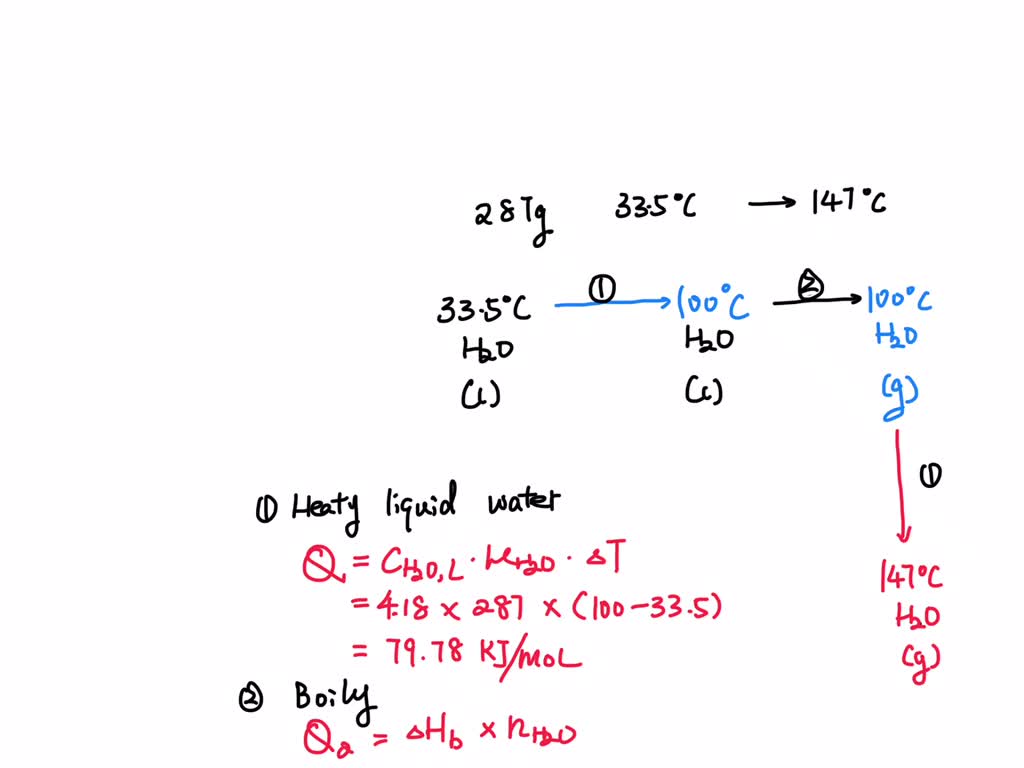 287g 33.5°C → 147°C
① ②
33.5°C → 100°C → 100°C
H₂O H₂O H₂O
(l) (l) (g)
①
① Heaty liquid water
Q₁ = C_H₂O,L · m_H₂O · ΔT
= 4.18 × 287 × (100-33.5)
= 79.78 KJ/moL
147°C
H₂O
(g)
② Boily
Q₂ = ΔH_b × n_H₂O